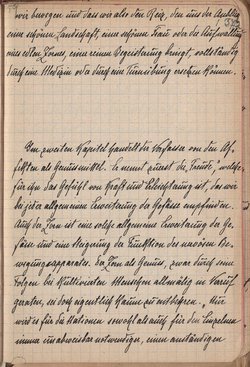 wir bewegen und dass wir also den Reiz, den uns der Anblick
einer schönen Landschaft, einer schönen Frau oder die Aufwallung
eines edlen Zornes, einer reinen Begeisterung bringt, vollständig
durch eine Medizin oder durch eine Turnübung ersetzen können.
Im zweiten Kapitel handelt der Verfasser von den Af-
fekten als Genussmittel. Er nennt zuerst die „Freude", welche
für ihn das Gefühl von Kraft und Erleichterung ist, das wir
bei jeder allgemeinen Erweiterung der Gefässe empfinden.
Auch der Zorn ist eine solche allgemeine Erweiterung der Ge-
fässe und eine Steigerung der Funktion des nervösen Be-
wegungsapparates. Der Zorn als Genuss, zwar durch seine
Folgen bei kultivierten Menschen allmälig in Verruf
geraten, sei doch eigentlich kaum zu entbehren. „Nur
wird es für die Nationen sowohl als auch für den Einzelnen
immer unabweisbar notwendiger, einen anständigen